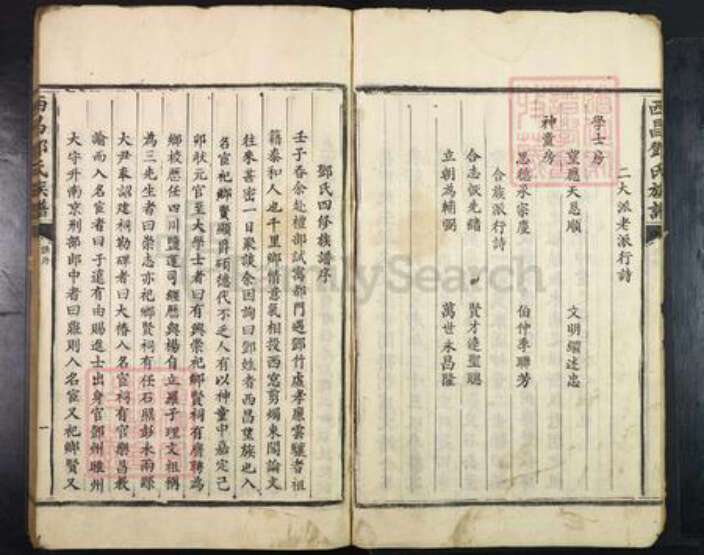 西昌鄧氏族譜
二大派老派行詩
學士房
望應天恩順 文明繼述忠
神童房
思德承宗慶 伯仲季聯芳
合族派行詩
合志恢先緒 賢才達聖聰
立朝為輔弼 萬世永昌隆
鄧氏四修族譜序
壬子春余赴禮部試寓都門遇鄧竹虛孝廉雲驤者祖
籍泰和人也千里鄉情意氣相投西窓剪燭東閣論文
往來甚密一日聚談余因詢曰鄧姓者西昌望族也入
名宦祀鄉賢顯爵碩德代不乏人有以神童中嘉定己
卯狀元官至大學士者曰有興崇祀鄉賢祠有膺聘為
鄉校歷任四川鹽運司經歷與楊自立羅子理文祖稱
為三先生者曰崇志亦祀鄉賢祠有任石照彭水兩縣
大尹奉詔建祠勒碑者曰大椿入名宦祠有官樂昌教
諭而入名宦者曰于遠有由賜進士出身官鄧州雎州
大守升南京刑部郎中者曰雍則入名宦又祀鄉賢又
西昌鄧氏族譜
譜序
一
FamilySearch